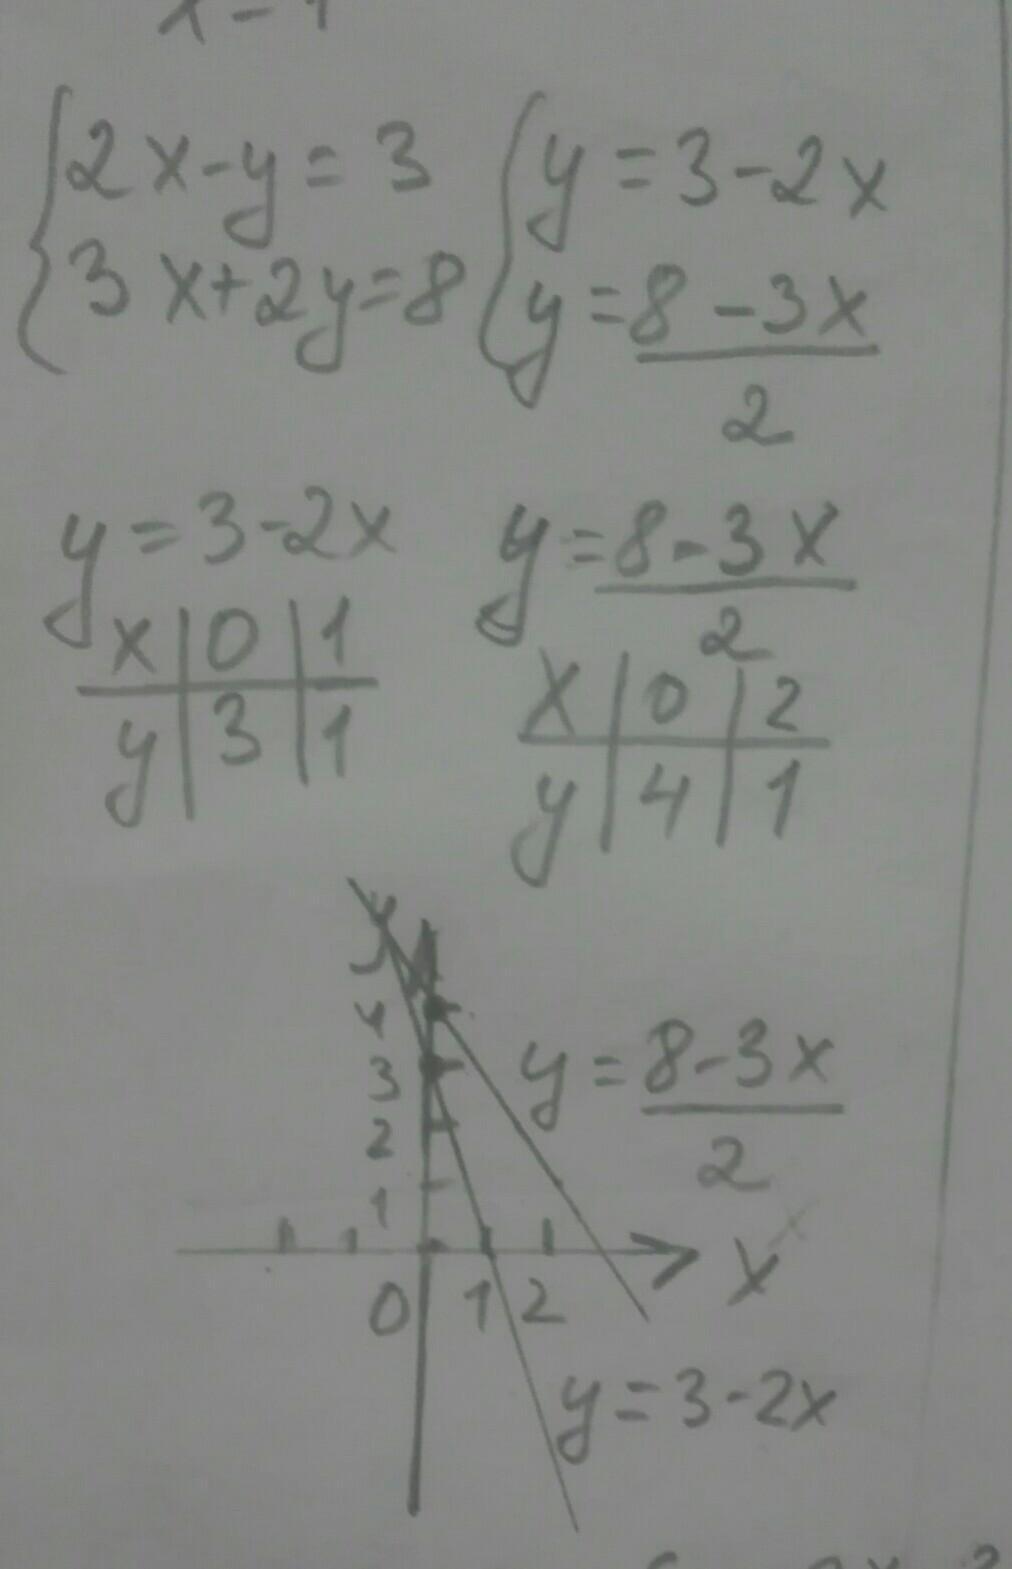 2x-y=3
3x+2y=8
y=3-2x
y=8-3x
2
y=3-2x
x 0 1
y 3 1
y=8-3x
2
x 0 2
y 4 1
y
4
3
2
1
0 1 2 x
y=8-3x
2
y=3-2x